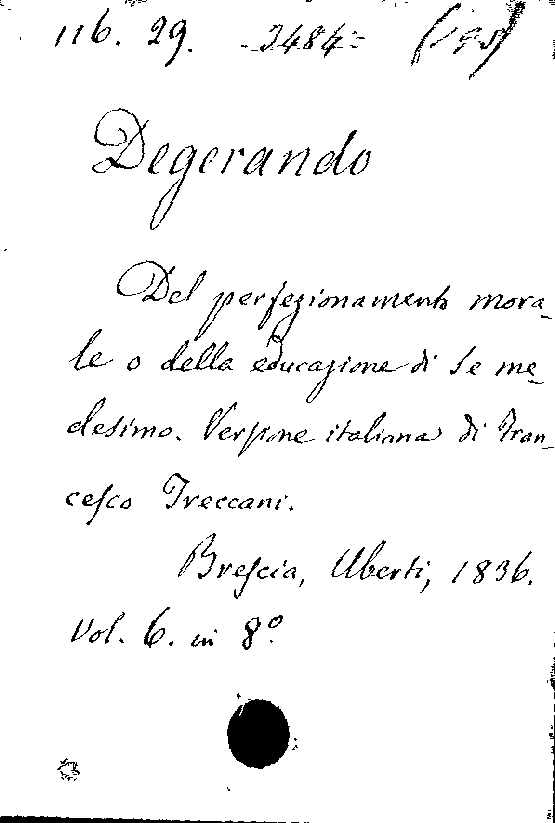 116. 29. -3484=
Degerando
Del perfezionamento mora-
le o della educazione di se me-
desimo. Versione italiana di Fran-
cesco Treccani.
Brescia, Uberti, 1836.
Vol. 6. in 8º.